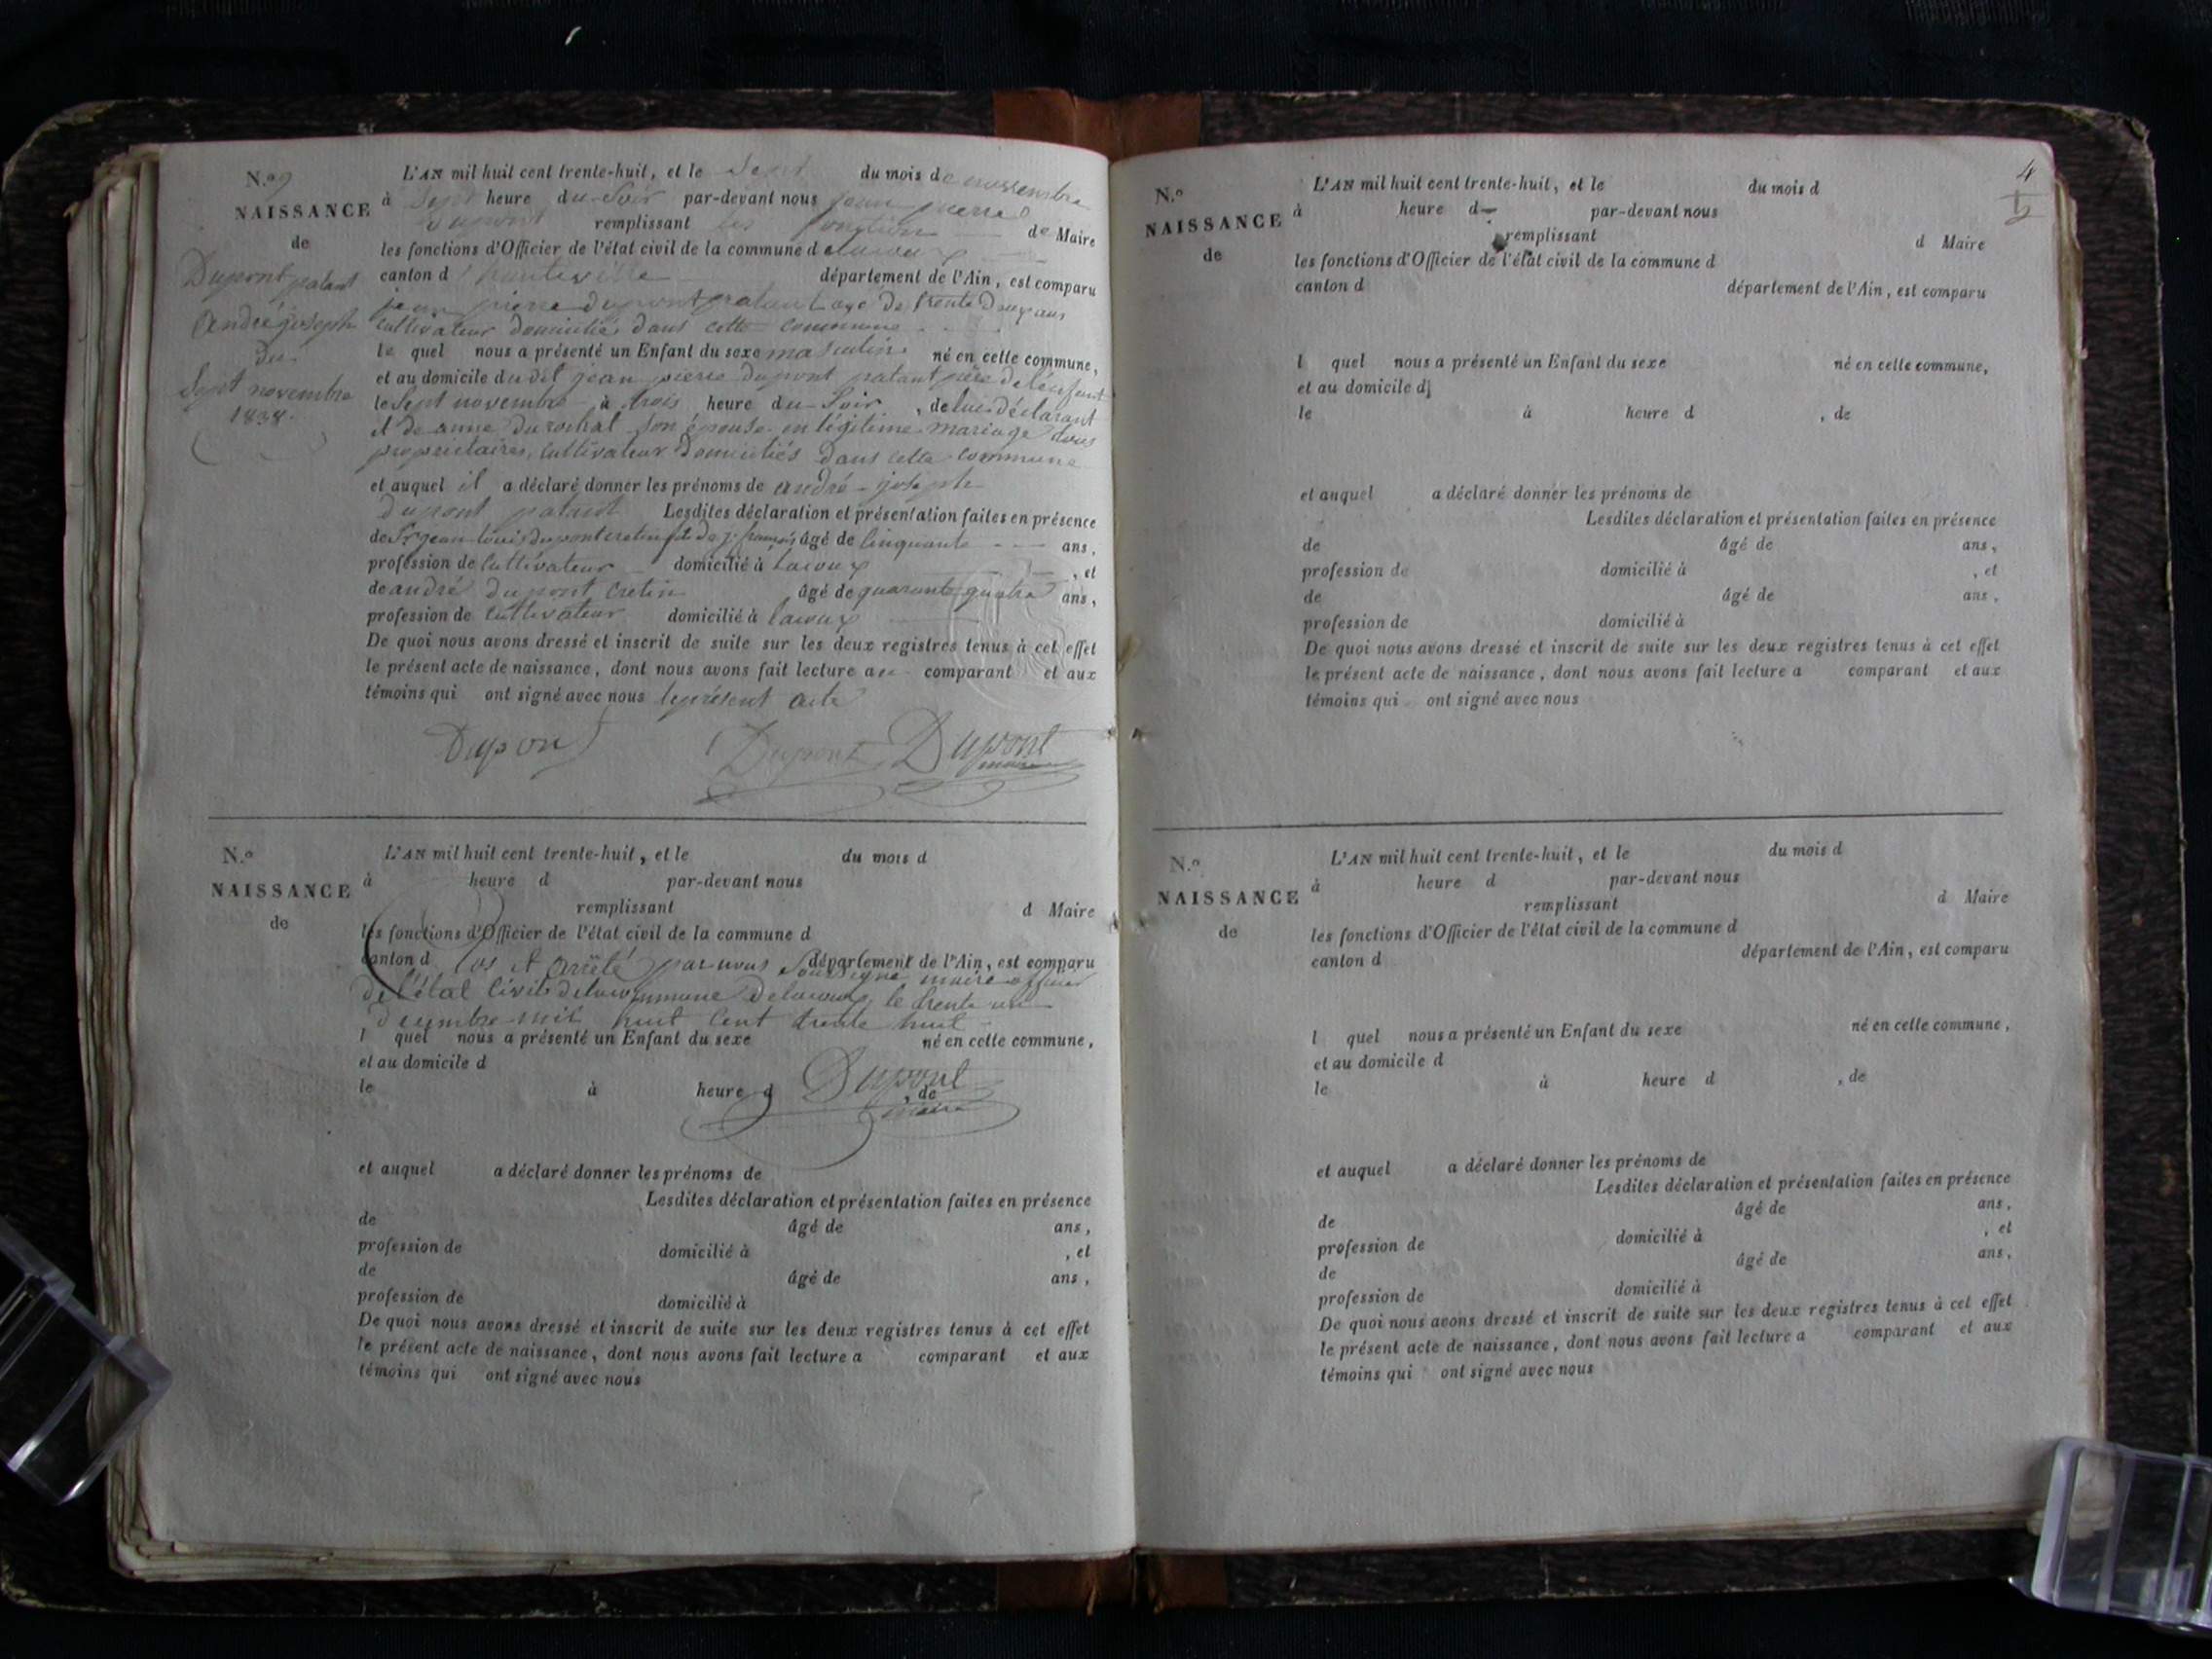 N.º 9
NAISSANCE
de
Dupont patant
André joseph
du
Sept novembre
1838.
L'AN mil huit cent trente-huit, et le Sept du mois de novembre
à Sept heure du Soir par-devant nous jean pierre
Dupont remplissant les fonction de Maire
les fonctions d'Officier de l'état civil de la commune de lacoux
canton d'hauteville département de l'Ain, est comparu
jean pierre dupont patant age de trente Deux ans
cultivateur domicilié dans cette commune
le quel nous a présenté un Enfant du sexe masculin né en cette commune,
et au domicile du dit jean pierre dupont patant père de l'enfant
le Sept novembre à trois heure du Soir, de lui déclarant
et de anne du rochat Son épouse en légitime mariage tous
propriétaires, cultivateur Domiciliés dans cette commune
et auquel il a déclaré donner les prénoms de andré-joseph
dupont patant Lesdites déclaration et présentation faites en présence
de jean-louis dupont cretin fils de j. françois âgé de cinquante ans,
profession de cultivateur domicilié à lacoux, et
de andré dupont cretin âgé de quarante quatre ans,
profession de cultivateur domicilié à lacoux
De quoi nous avons dressé et inscrit de suite sur les deux registres tenus à cet effet
le présent acte de naissance, dont nous avons fait lecture au comparant et aux
témoins qui ont signé avec nous le présent acte
Dupont Dupont Dupont
maire
N.º
NAISSANCE
de
L'AN mil huit cent trente-huit, et le du mois d
à heure d par-devant nous
remplissant d Maire
les fonctions d'Officier de l'état civil de la commune d
canton d département de l'Ain, est comparu
Clos et arrêté par nous Soussigné maire officier
de l'état civil de la commune de lacoux, le trente un
décembre mil huit cent trente huit
l quel nous a présenté un Enfant du sexe né en cette commune,
et au domicile d
le à heure d , de
Dupont
maire
et auquel a déclaré donner les prénoms de
Lesdites déclaration et présentation faites en présence
de âgé de ans,
profession de domicilié à , et
de âgé de ans,
profession de domicilié à
De quoi nous avons dressé et inscrit de suite sur les deux registres tenus à cet effet
le présent acte de naissance, dont nous avons fait lecture a comparant et aux
témoins qui ont signé avec nous
4
N.º
NAISSANCE
de
L'AN mil huit cent trente-huit, et le du mois d
à heure d par-devant nous
remplissant d Maire
les fonctions d'Officier de l'état civil de la commune d
canton d département de l'Ain, est comparu
l quel nous a présenté un Enfant du sexe né en cette commune,
et au domicile d
le à heure d , de
et auquel a déclaré donner les prénoms de
Lesdites déclaration et présentation faites en présence
de âgé de ans,
profession de domicilié à , et
de âgé de ans,
profession de domicilié à
De quoi nous avons dressé et inscrit de suite sur les deux registres tenus à cet effet
le présent acte de naissance, dont nous avons fait lecture a comparant et aux
témoins qui ont signé avec nous
N.º
NAISSANCE
de
L'AN mil huit cent trente-huit, et le du mois d
à heure d par-devant nous
remplissant d Maire
les fonctions d'Officier de l'état civil de la commune d
canton d département de l'Ain, est comparu
l quel nous a présenté un Enfant du sexe né en cette commune,
et au domicile d
le à heure d , de
et auquel a déclaré donner les prénoms de
Lesdites déclaration et présentation faites en présence
de âgé de ans,
profession de domicilié à , et
de âgé de ans,
profession de domicilié à
De quoi nous avons dressé et inscrit de suite sur les deux registres tenus à cet effet
le présent acte de naissance, dont nous avons fait lecture a comparant et aux
témoins qui ont signé avec nous